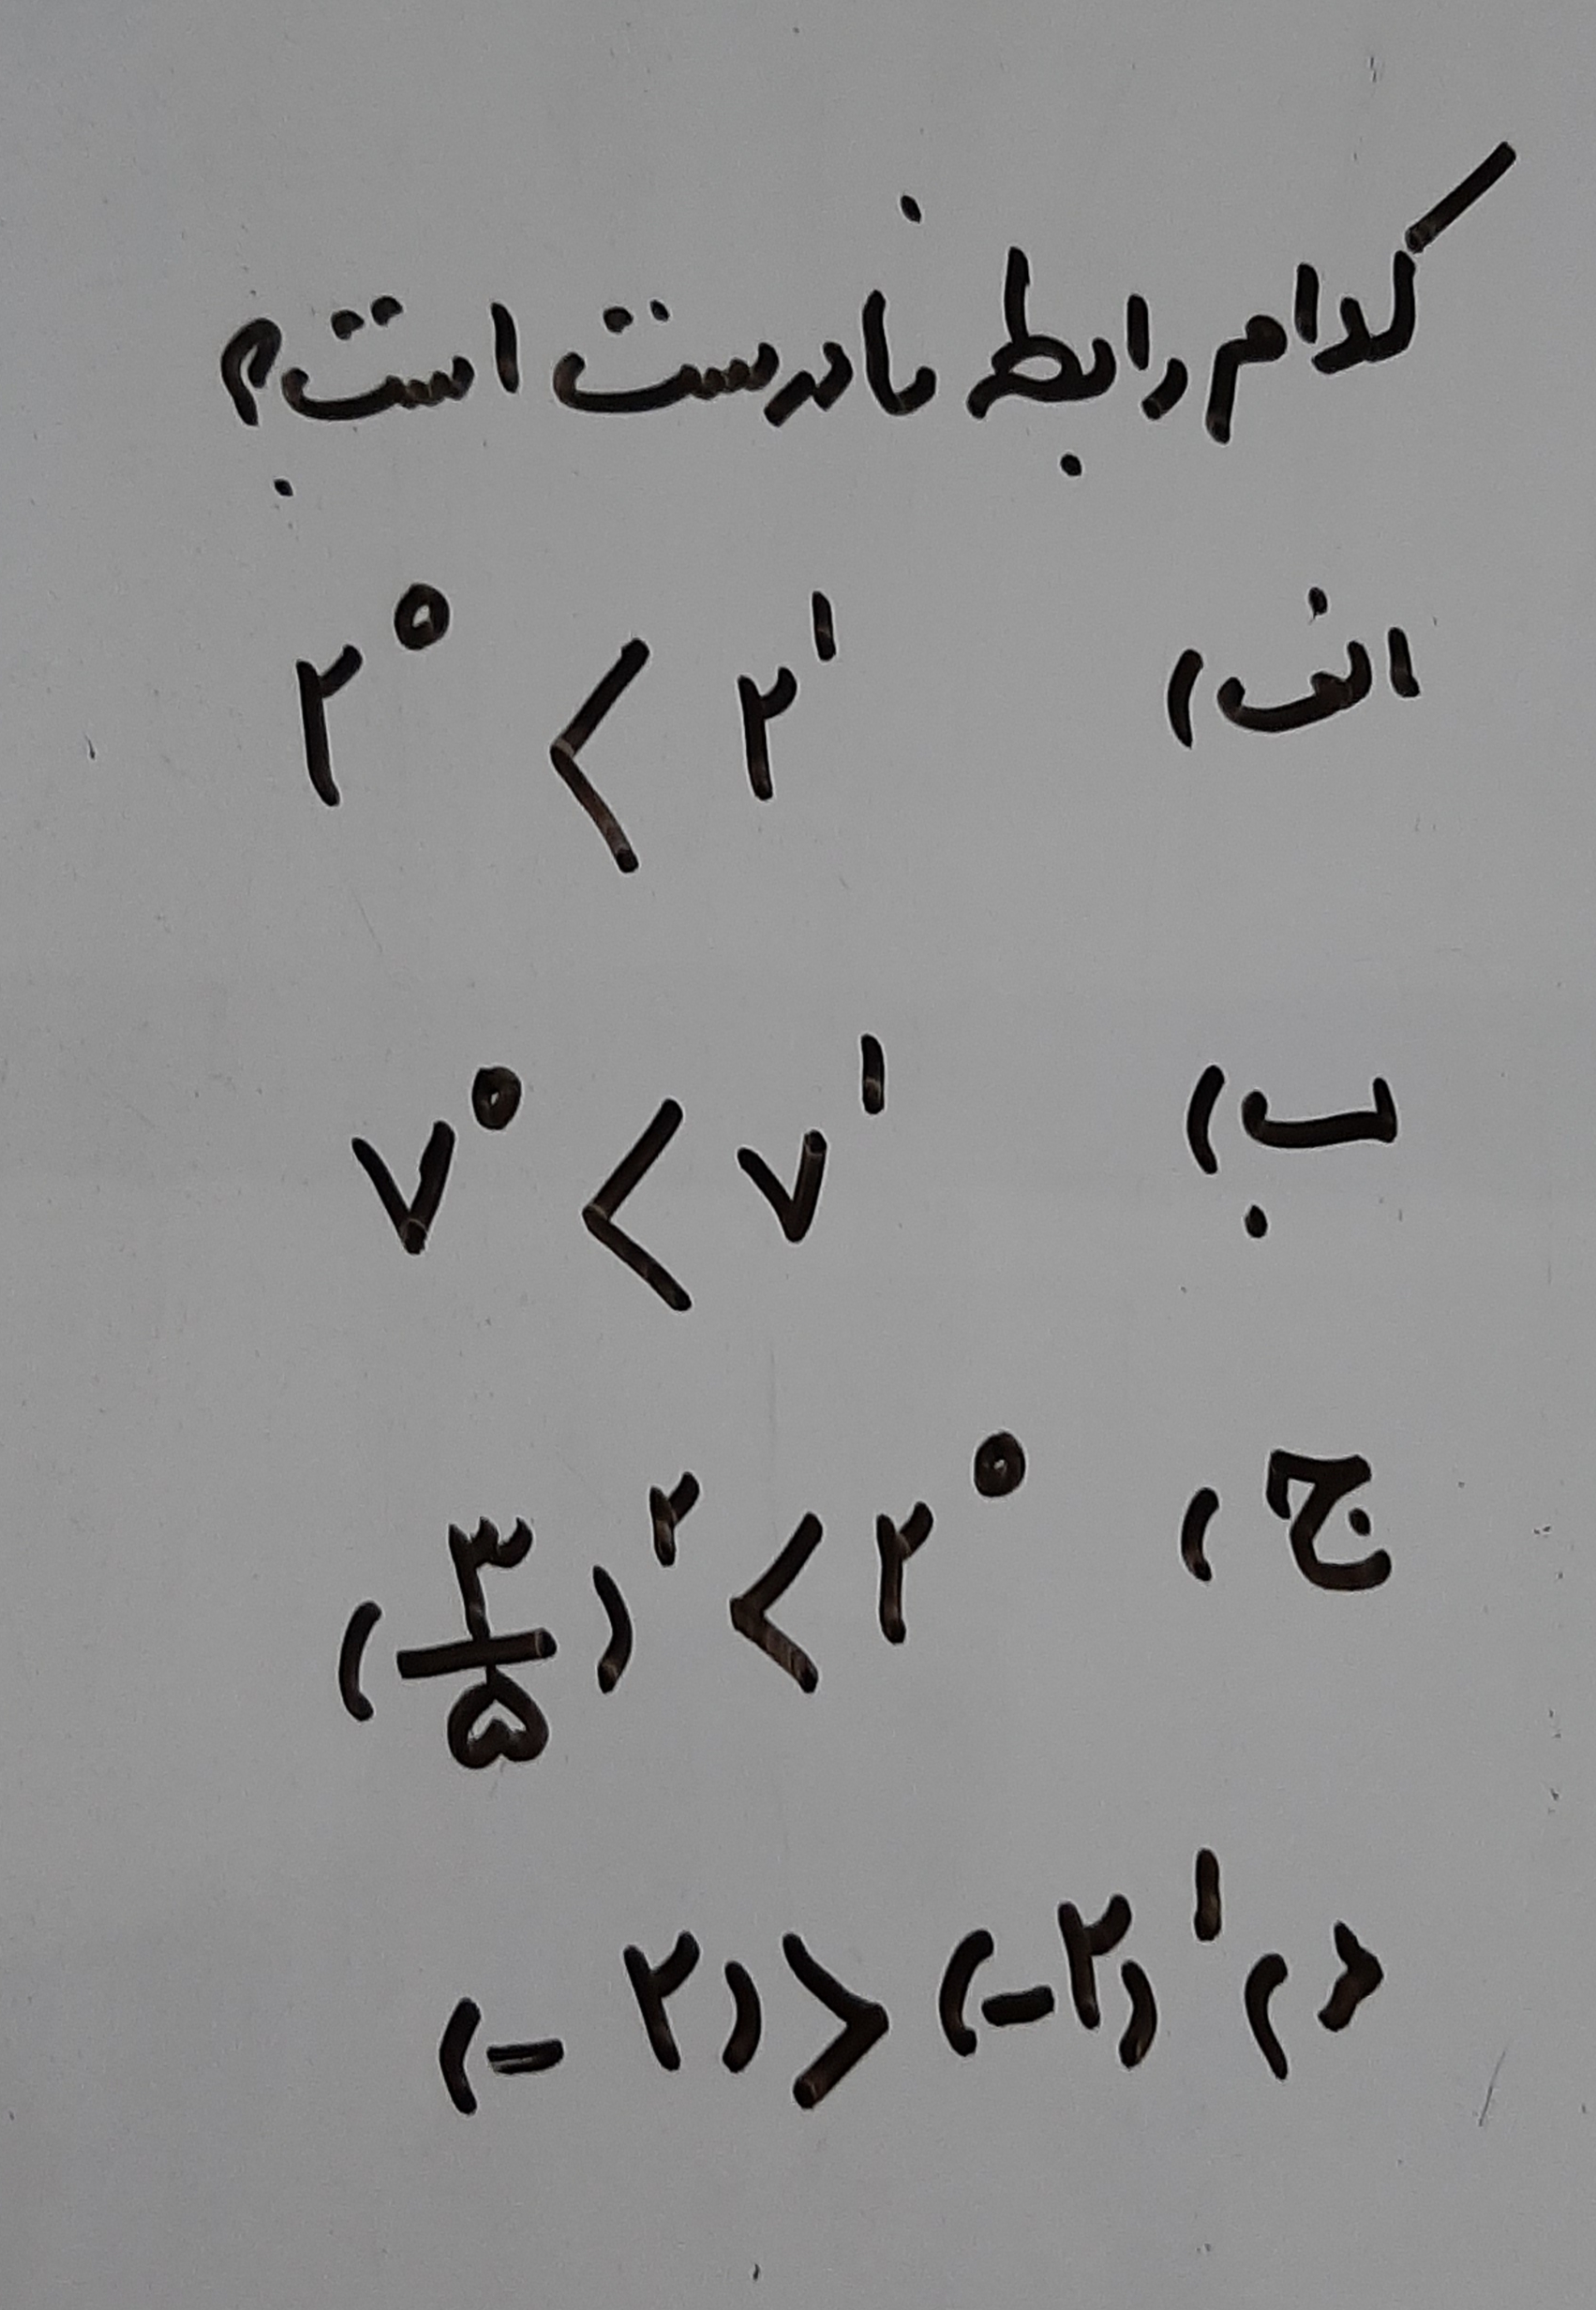 کدام رابطه نادرست است؟
الف) ۲^۰ < ۲^۱
ب) ۷^۰ < ۷^۱
ج) (۳/۵)^۲ < ۲^۰
د) (-۲) > (-۲)^۱